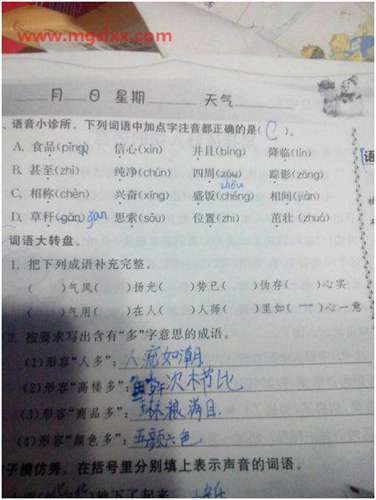 www.mgdxx.com
月 日 星期 天气
、语音小诊所。下列词语中加点字注音都正确的是( C )。
A. 食品(pǐng) 信心(xìn) 并且(bìng) 降临(lín)
B. 甚至(zhì) 纯净(chún) 四周(zōu) 踪影(zōng)
zhōu
C. 相称(chèn) 兴奋(xīng) 盛饭(chéng) 相间(jiàn)
D. 草秆(gān) gǎn 思索(sǒu) 位置(zhì) 茁壮(zhuó)
词语大转盘。
1. 把下列成语补充完整。
( )气风( ) 扬光( ) 势已( ) 伪存( )心实
( )气用( ) 在人( ) 人师( ) 里如(一)心一意
2. 按要求写出含有“多”字意思的成语。
(1)形容“人多”：人流如潮
(2)形容“高楼多”：次木节比
(3)形容“商品多”：琳粮满目
(4)形容“颜色多”：五颜六色
子模仿秀。在括号里分别填上表示声音的词语。
地下了起来